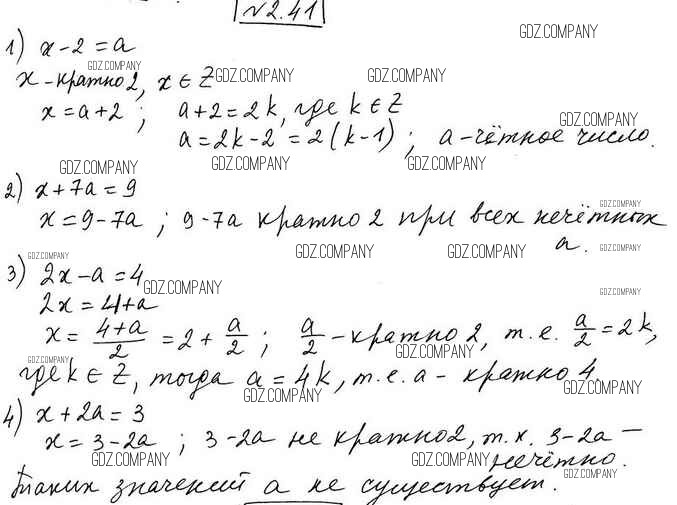 №2.41
GDZ.COMPANY
1) x-2=a
GDZ.COMPANY
x-кратно 2, x∈Z GDZ.COMPANY GDZ.COMPANY
x=a+2; a+2=2k, где k∈Z
GDZ.COMPANY
a=2k-2=2(k-1); a-чётное число.
GDZ.COMPANY GDZ.COMPANY GDZ.COMPANY
2) x+7a=9
GDZ.COMPANY
x=9-7a; 9-7a кратно 2 при всех нечётных
a.
GDZ.COMPANY GDZ.COMPANY GDZ.COMPANY GDZ.COMPANY
3) 2x-a=4
GDZ.COMPANY GDZ.COMPANY
2x=4+a
x=(4+a)/2=2+a/2; a/2-кратно 2, т.е. a/2=2k,
GDZ.COMPANY GDZ.COMPANY
где k∈Z, тогда a=4k, т.е. a-кратно 4.
GDZ.COMPANY GDZ.COMPANY
4) x+2a=3
x=3-2a; 3-2a не кратно 2, т.к. 3-2a —
нечётно.
GDZ.COMPANY GDZ.COMPANY GDZ.COMPANY
Таких значений a не существует.
GDZ.COMPANY GDZ.COMPANY